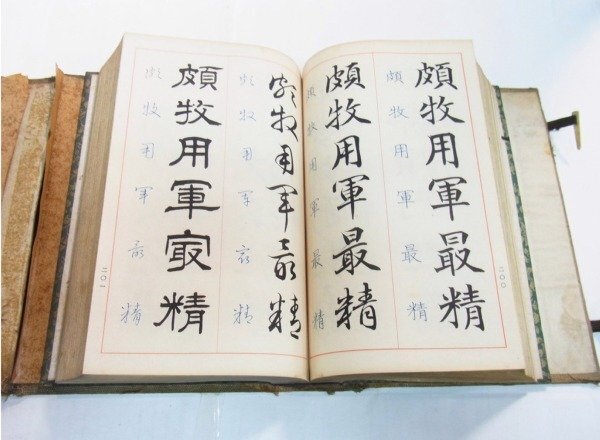 二〇〇
頗牧用軍最精
頗牧用軍最精
頗牧用軍最精
頗牧用軍最精
頗牧用軍最精
頗牧用軍最精
頗牧用軍㝡精
頗牧用軍㝡精
二〇一